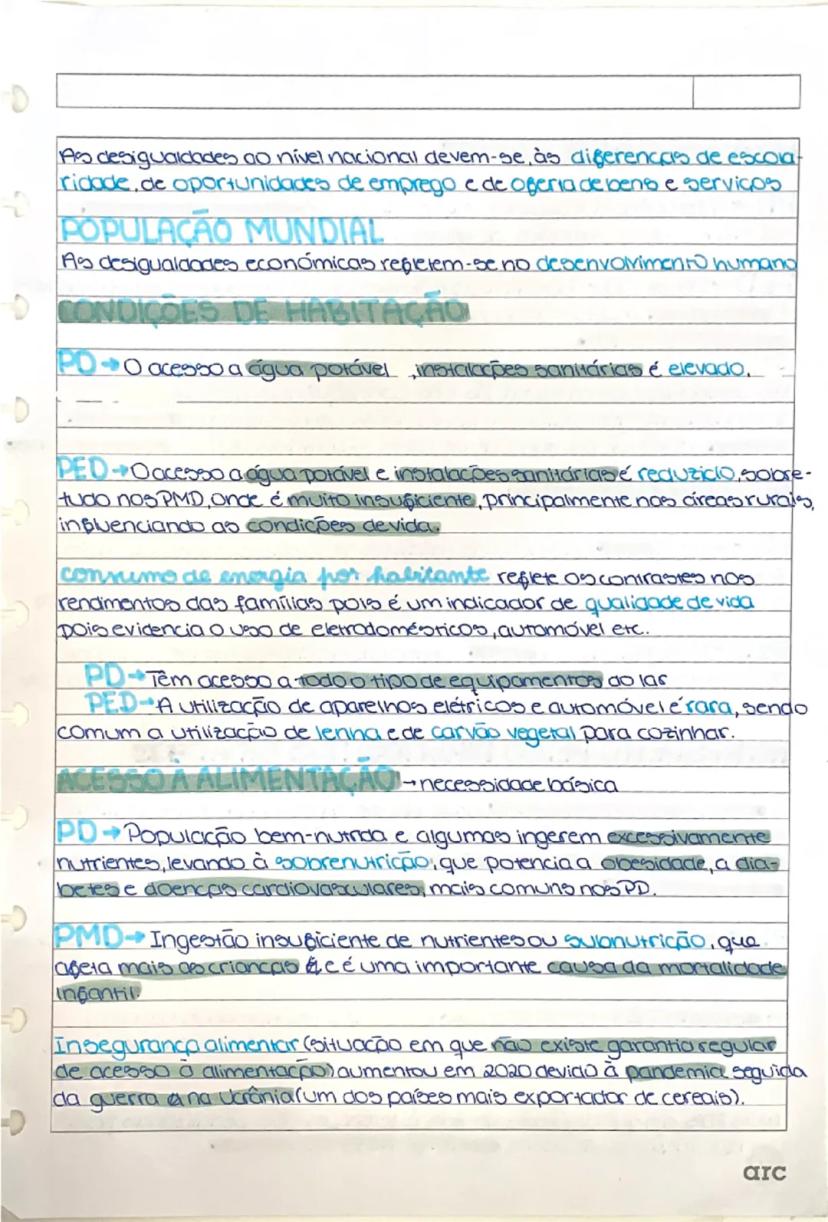 As desigualdades ao nível nacional devem-se, às diferenças de escola-
ridade, de oportunidades de emprego e de oferta de bens e serviços
POPULAÇÃO MUNDIAL
As desigualdades económicas refletem-se no desenvolvimento humano
CONDIÇÕES DE HABITAÇÃO
PD → O acesso a água potável , instalações sanitárias é elevado.
PED → O acesso a água potável e instalações sanitárias é reduzido, sobre-
tudo nos PMD, onde é muito insuficiente, principalmente nas áreas rurais,
influenciando as condições de vida.
consumo de energia por habitante reflete os contrastes nos
rendimentos das famílias pois é um indicador de qualidade de vida
pois evidencia o uso de eletrodomésticos, automóvel etc.
PD → Têm acesso a todo o tipo de equipamentos do lar
PED → A utilização de aparelhos elétricos e automóvel é rara, sendo
comum a utilização de lenha e de carvão vegetal para cozinhar.
ACESSO À ALIMENTAÇÃO → necessidade básica
PD → População bem-nutrida e algumas ingerem excessivamente
nutrientes, levando à sobrenutrição, que potencia a obesidade, a dia-
betes e doenças cardiovasculares, mais comuns nos PD.
PMD → Ingestão insuficiente de nutrientes ou subnutrição, que
afeta mais as crianças e é uma importante causa da mortalidade
infantil.
Insegurança alimentar (situação em que não existe garantia regular
de acesso à alimentação) aumentou em 2020 devido à pandemia seguida
da guerra na Ucrânia (um dos países mais exportador de cereais).
arc